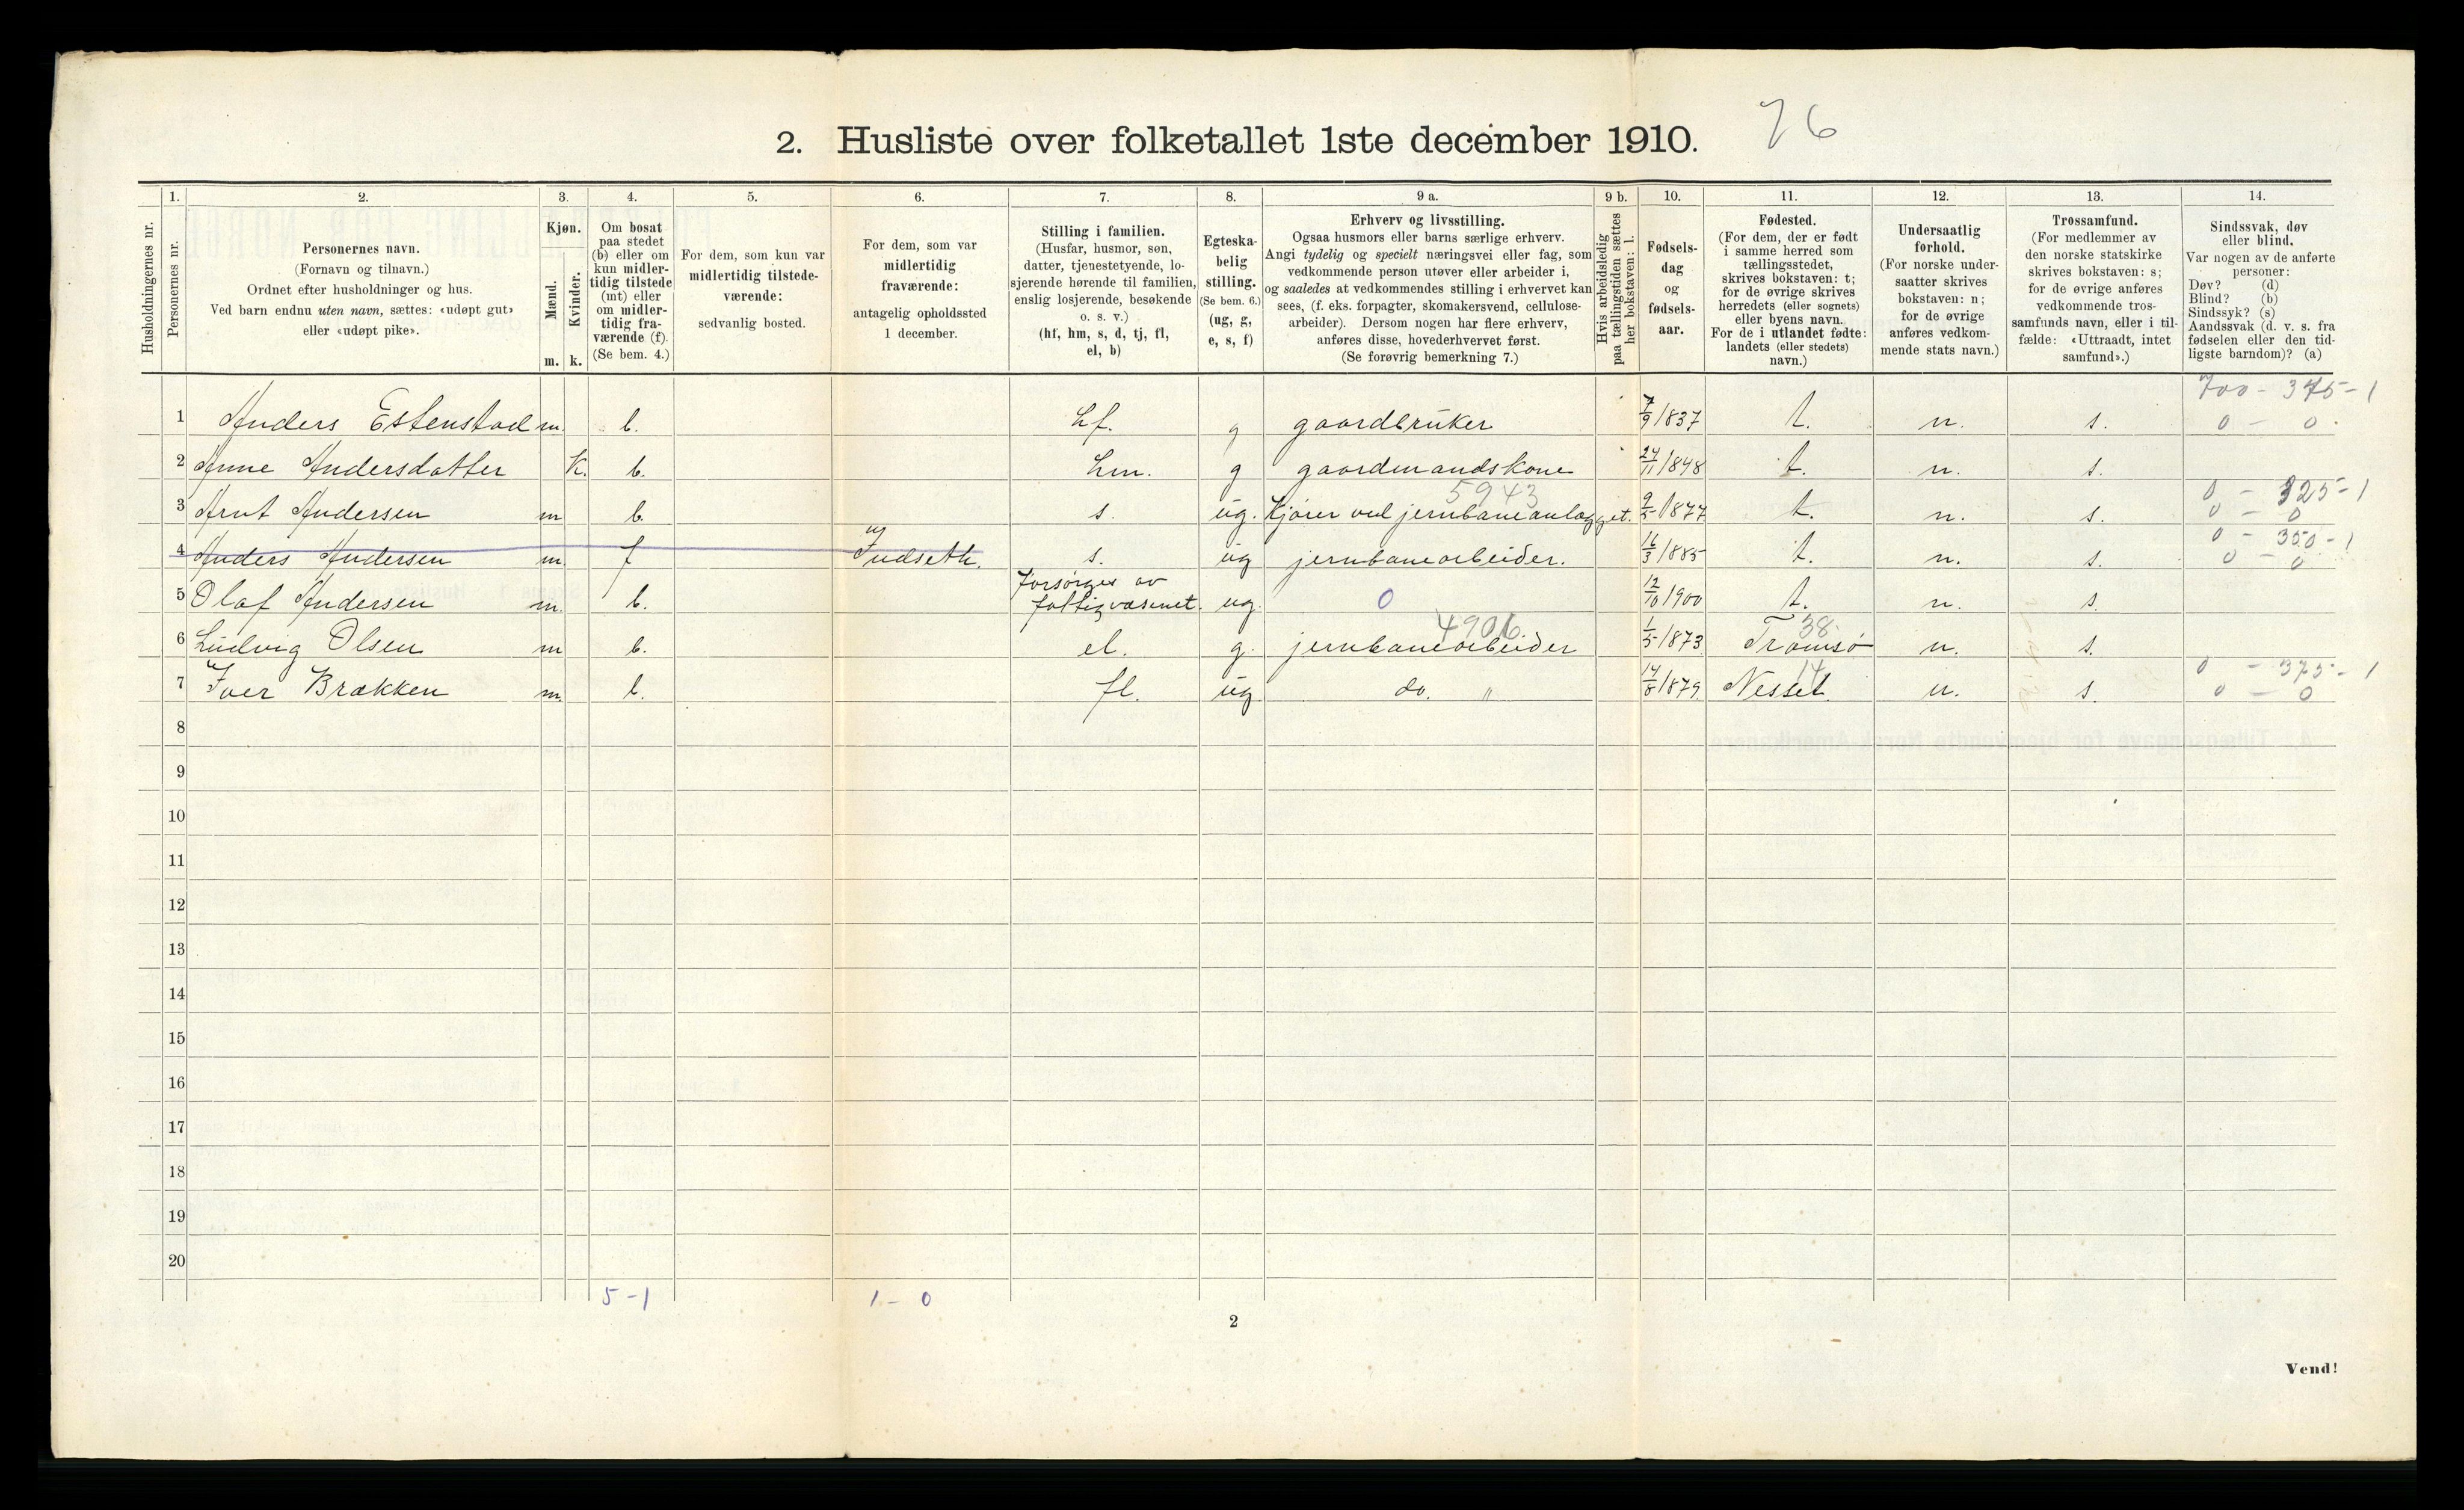 2. Husliste over folketallet 1ste december 1910. 76
Husholdningernes nr.
1.
Personernes nr.
2.
Personernes navn.
(Fornavn og tilnavn.)
Ordnet efter husholdninger og hus.
Ved barn endnu uten navn, sættes: «udøpt gut»
eller «udøpt pike».
3.
Kjøn.
Mænd.
Kvinder.
m. k.
4.
Om bosat
paa stedet
(b) eller om
kun midler-
tidig tilstede
(mt) eller
om midler-
tidig fra-
værende (f).
(Se bem. 4.)
5.
For dem, som kun var
midlertidig tilstede-
værende:
sedvanlig bosted.
6.
For dem, som var
midlertidig
fraværende:
antagelig opholdssted
1 december.
7.
Stilling i familien.
(Husfar, husmor, søn,
datter, tjenestetyende, lo-
sjerende hørende til familien,
enslig losjerende, besøkende
o. s. v.)
(hf, hm, s, d, tj, fl,
el, b)
8.
Egteska-
belig
stilling.
(Se bem. 6.)
(ug, g,
e, s, f)
9 a.
Erhverv og livsstilling.
Ogsaa husmors eller barns særlige erhverv.
Angi tydelig og specielt næringsvei eller fag, som
vedkommende person utøver eller arbeider i,
og saaledes at vedkommendes stilling i erhvervet kan
sees, (f. eks. forpagter, skomakersvend, cellulose-
arbeider). Dersom nogen har flere erhverv,
anføres disse, hovederhvervet først.
(Se forøvrig bemerkning 7.)
9 b.
Hvis arbeidsledig
paa tællingstiden sættes
her bokstaven: l.
10.
Fødsels-
dag
og
fødsels-
aar.
11.
Fødested.
(For dem, der er født
i samme herred som
tællingsstedet,
skrives bokstaven: t;
for de øvrige skrives
herredets (eller sognets)
eller byens navn.
For de i utlandet fødte:
landets (eller stedets)
navn.)
12.
Undersaatlig
forhold.
(For norske under-
saatter skrives
bokstaven: n;
for de øvrige
anføres vedkom-
mende stats navn.)
13.
Trossamfund.
(For medlemmer av
den norske statskirke
skrives bokstaven: s;
for de øvrige anføres
vedkommende tros-
samfunds navn, eller i til-
fælde: «Uttraadt, intet
samfund».)
14.
Sindssvak, døv
eller blind.
Var nogen av de anførte
personer:
Døv? (d)
Blind? (b)
Sindssyk? (s)
Aandssvak (d. v. s. fra
fødselen eller den tid-
ligste barndom)? (a)
700 - 375 - 1
1 Anders Estenstad m. b. hf. g gaardbruker 7/9 1837 t. n. s. 0 - 0
2 Anne Andersdatter k. b. hm. g gaardmandskone 24/11 1848 t. n. s.
5943 0 - 325 - 1
3 Arnt Andersen m b. s. ug. Kjører ved jernbaneanlægget. 9/5 1877 t. n. s. 0 - 0
0 - 350 - 1
4 Anders Andersen m. f Indseth. s. ug jernbanearbeider. 16/3 1885 t. n. s. 0 - 0
Forsørges av
5 Olaf Andersen m. b. fattigvæsenet. ug. 0 12/10 1900 t. n. s.
4906 38
6 Ludvig Olsen m b. el. g. jernbanearbeider 1/5 1873 Tromsø n. s.
14 0 - 375 - 1
7 Iver Brækken m. b. fl. ug. do. " 17/8 1879. Nesset n. s. 0 - 0
8
9
10
11
12
13
14
15
16
17
18
19
20
5 - 1 1 - 0
2
Vend!